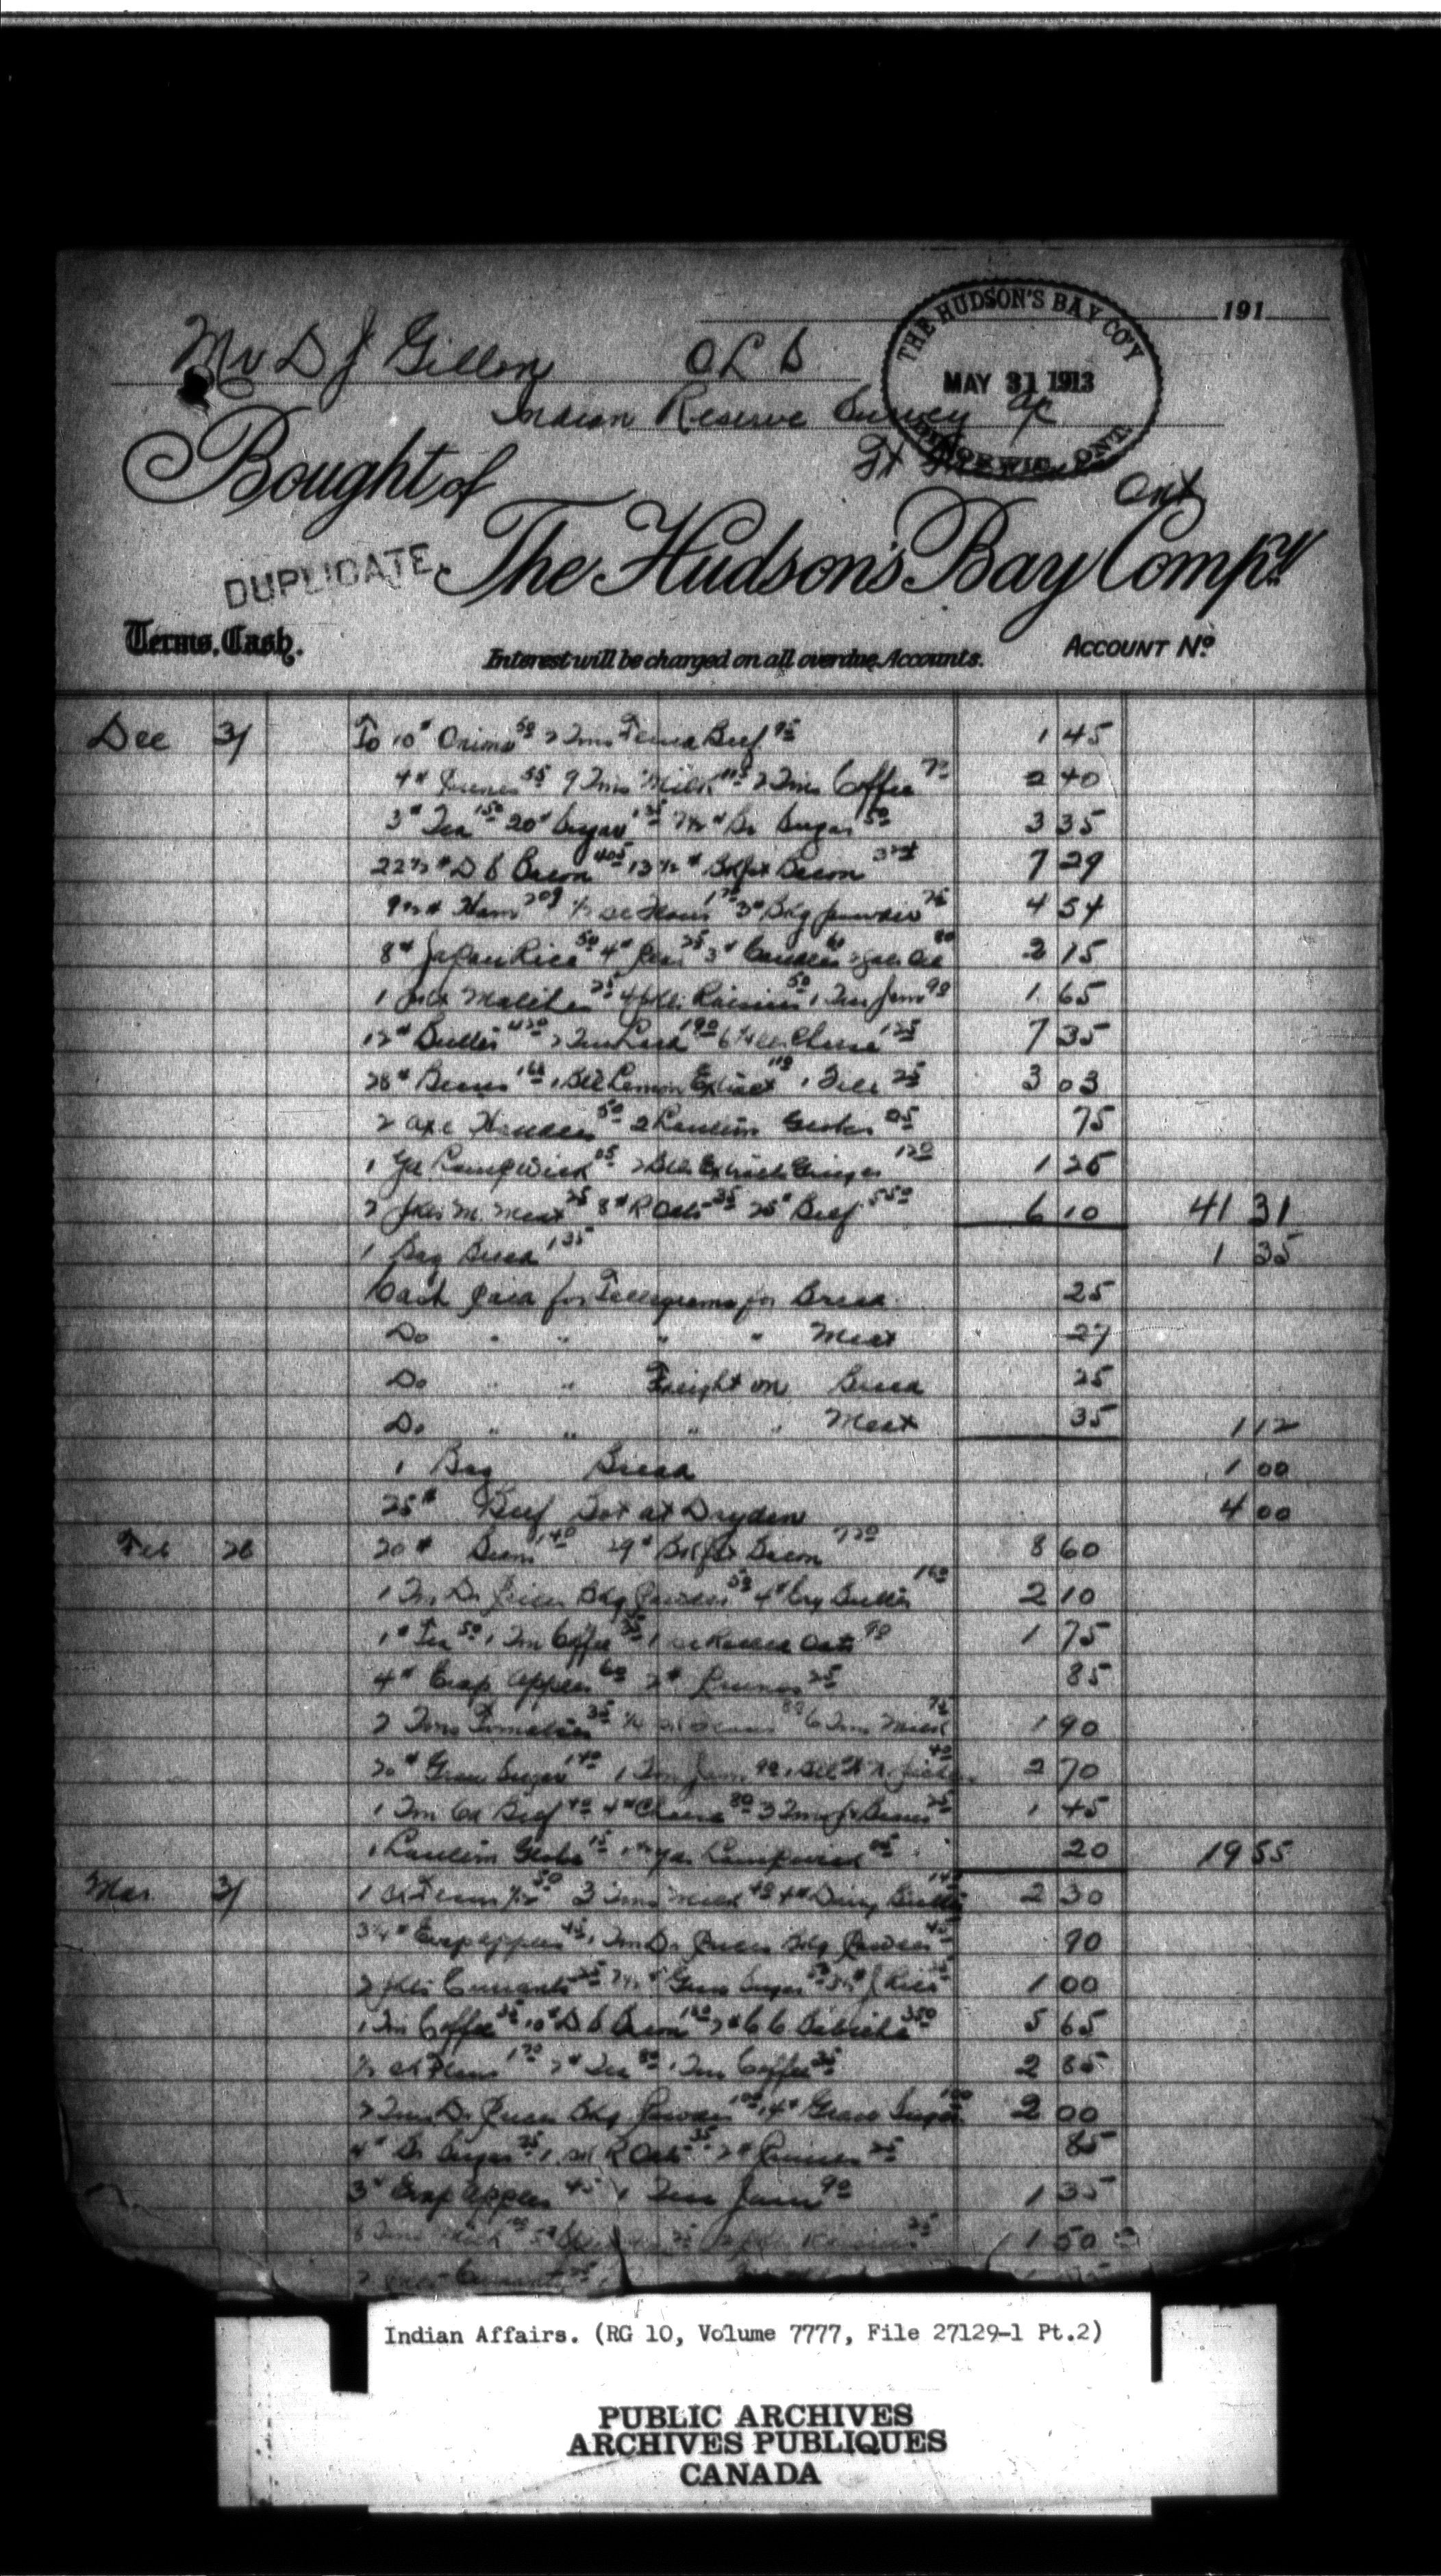 191
Mr D J Gillon O L S
THE HUDSON'S BAY CO'Y
MAY 31 1913
DINORWIC, ONT.
Indian Reserve Survey a/c
Ft
Ont
Bought of
The Hudson's Bay Compy
DUPLICATE
Terms. Cash.
Interest will be charged on all overdue Accounts.
ACCOUNT No
Dec 31 To 10# Onions 50 2 Tins Beef 95 1 45
4# Prunes 55 9 Tins Milk 115 2 Tins Coffee 70 2 40
3# Tea 150 20# Sugar 135 7½# Br Sugar 50 3 35
22½# D S Bacon 405 13½# Bkfst Bacon 324 7 29
9½# Ham 209 ½ Sk Flour 170 3# Bkg Powder 75 4 54
8# Japan Rice 50 4# Peas 25 3# Candles 60 2 Gals Oil 80 2 15
1 Matches 25 4 pkts Raisins 50 1 Tin Jam 90 1 65
12# Butter 420 2 Tins Lard 190 6¼ lbs Cheese 125 7 35
28# Beans 168 1 Btl Lemon Extract 110 1 File 25 3 03
2 Axe Handles 50 2 Lantern Globes 25 75
1 Yd Lampwick 05 2 Btls Extract Ginger 120 1 25
2 pkts M. Meat 25 8# R Oats 35 25# Beef 550 6 10 41 31
1 Bag Bread 135 1 35
Cash paid for Telegrams for Bread 25
Do " " " " Meat 27
Do " " Freight on Bread 25
Do " " " " Meat 35 1 12
1 Bag Bread 1 00
25# Beef Bot at Dryden 4 00
Feb 28 20# Beans 140 29# Bkfst Bacon 720 8 60
1 Tin Dr Prices Bkg Powder 50 4# Cry Butter 160 2 10
1# Tea 50 1 Tin Coffee 35 1 Sk Rolled Oats 90 1 75
4# Evap Apples 60 2# Prunes 25 85
2 Tins Tomatoes 35 ¼ Sk 80 6 Tins Milk 75 1 90
20# Gran Sugar 140 1 Tin Jam 90 1 Btl 40 2 70
1 Tin Cd Beef 40 4# Cheese 80 3 Tins Beans 25 1 45
1 Lantern Globe 15 1 Yd Lampwick 05 20 19 55
Mar 31 1 Sk 50 3 Tins Milk 40 4# Dairy Butter 140 2 30
3¼# Evap Apples 45 1 Tin Dr Prices Bkg Powder 45 90
2 pkts Currants 25 Gran Sugar 50 Rice 25 1 00
1 Tin Coffee 35 10# D S Bacon 180 350 5 65
½ Sk Flour 170 2# Tea 80 1 Tin Coffee 35 2 85
2 Tins Dr Prices Bkg Powder 100 14# Gran Sugar 100 2 00
4# Br Sugar 25 1 Sk R Oats 35 2# Prunes 25 85
3# Evap Apples 45 1 Tin Jam 90 1 35
8 Tins Milk 100 25 2 pkts Raisins 25 1 50
2 pkts Currants 25
Indian Affairs. (RG 10, Volume 7777, File 27129-1 Pt.2)
PUBLIC ARCHIVES
ARCHIVES PUBLIQUES
CANADA